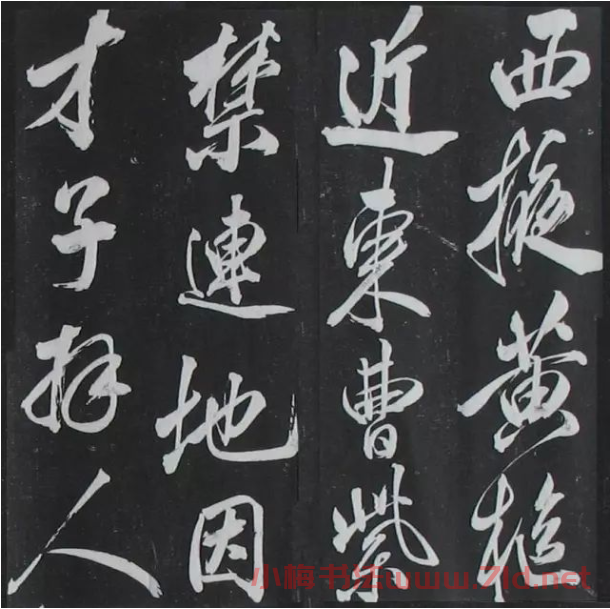 西掖黄樞
近東曹紫
禁連地因
才子拜人
小梅书法www.7jd.net